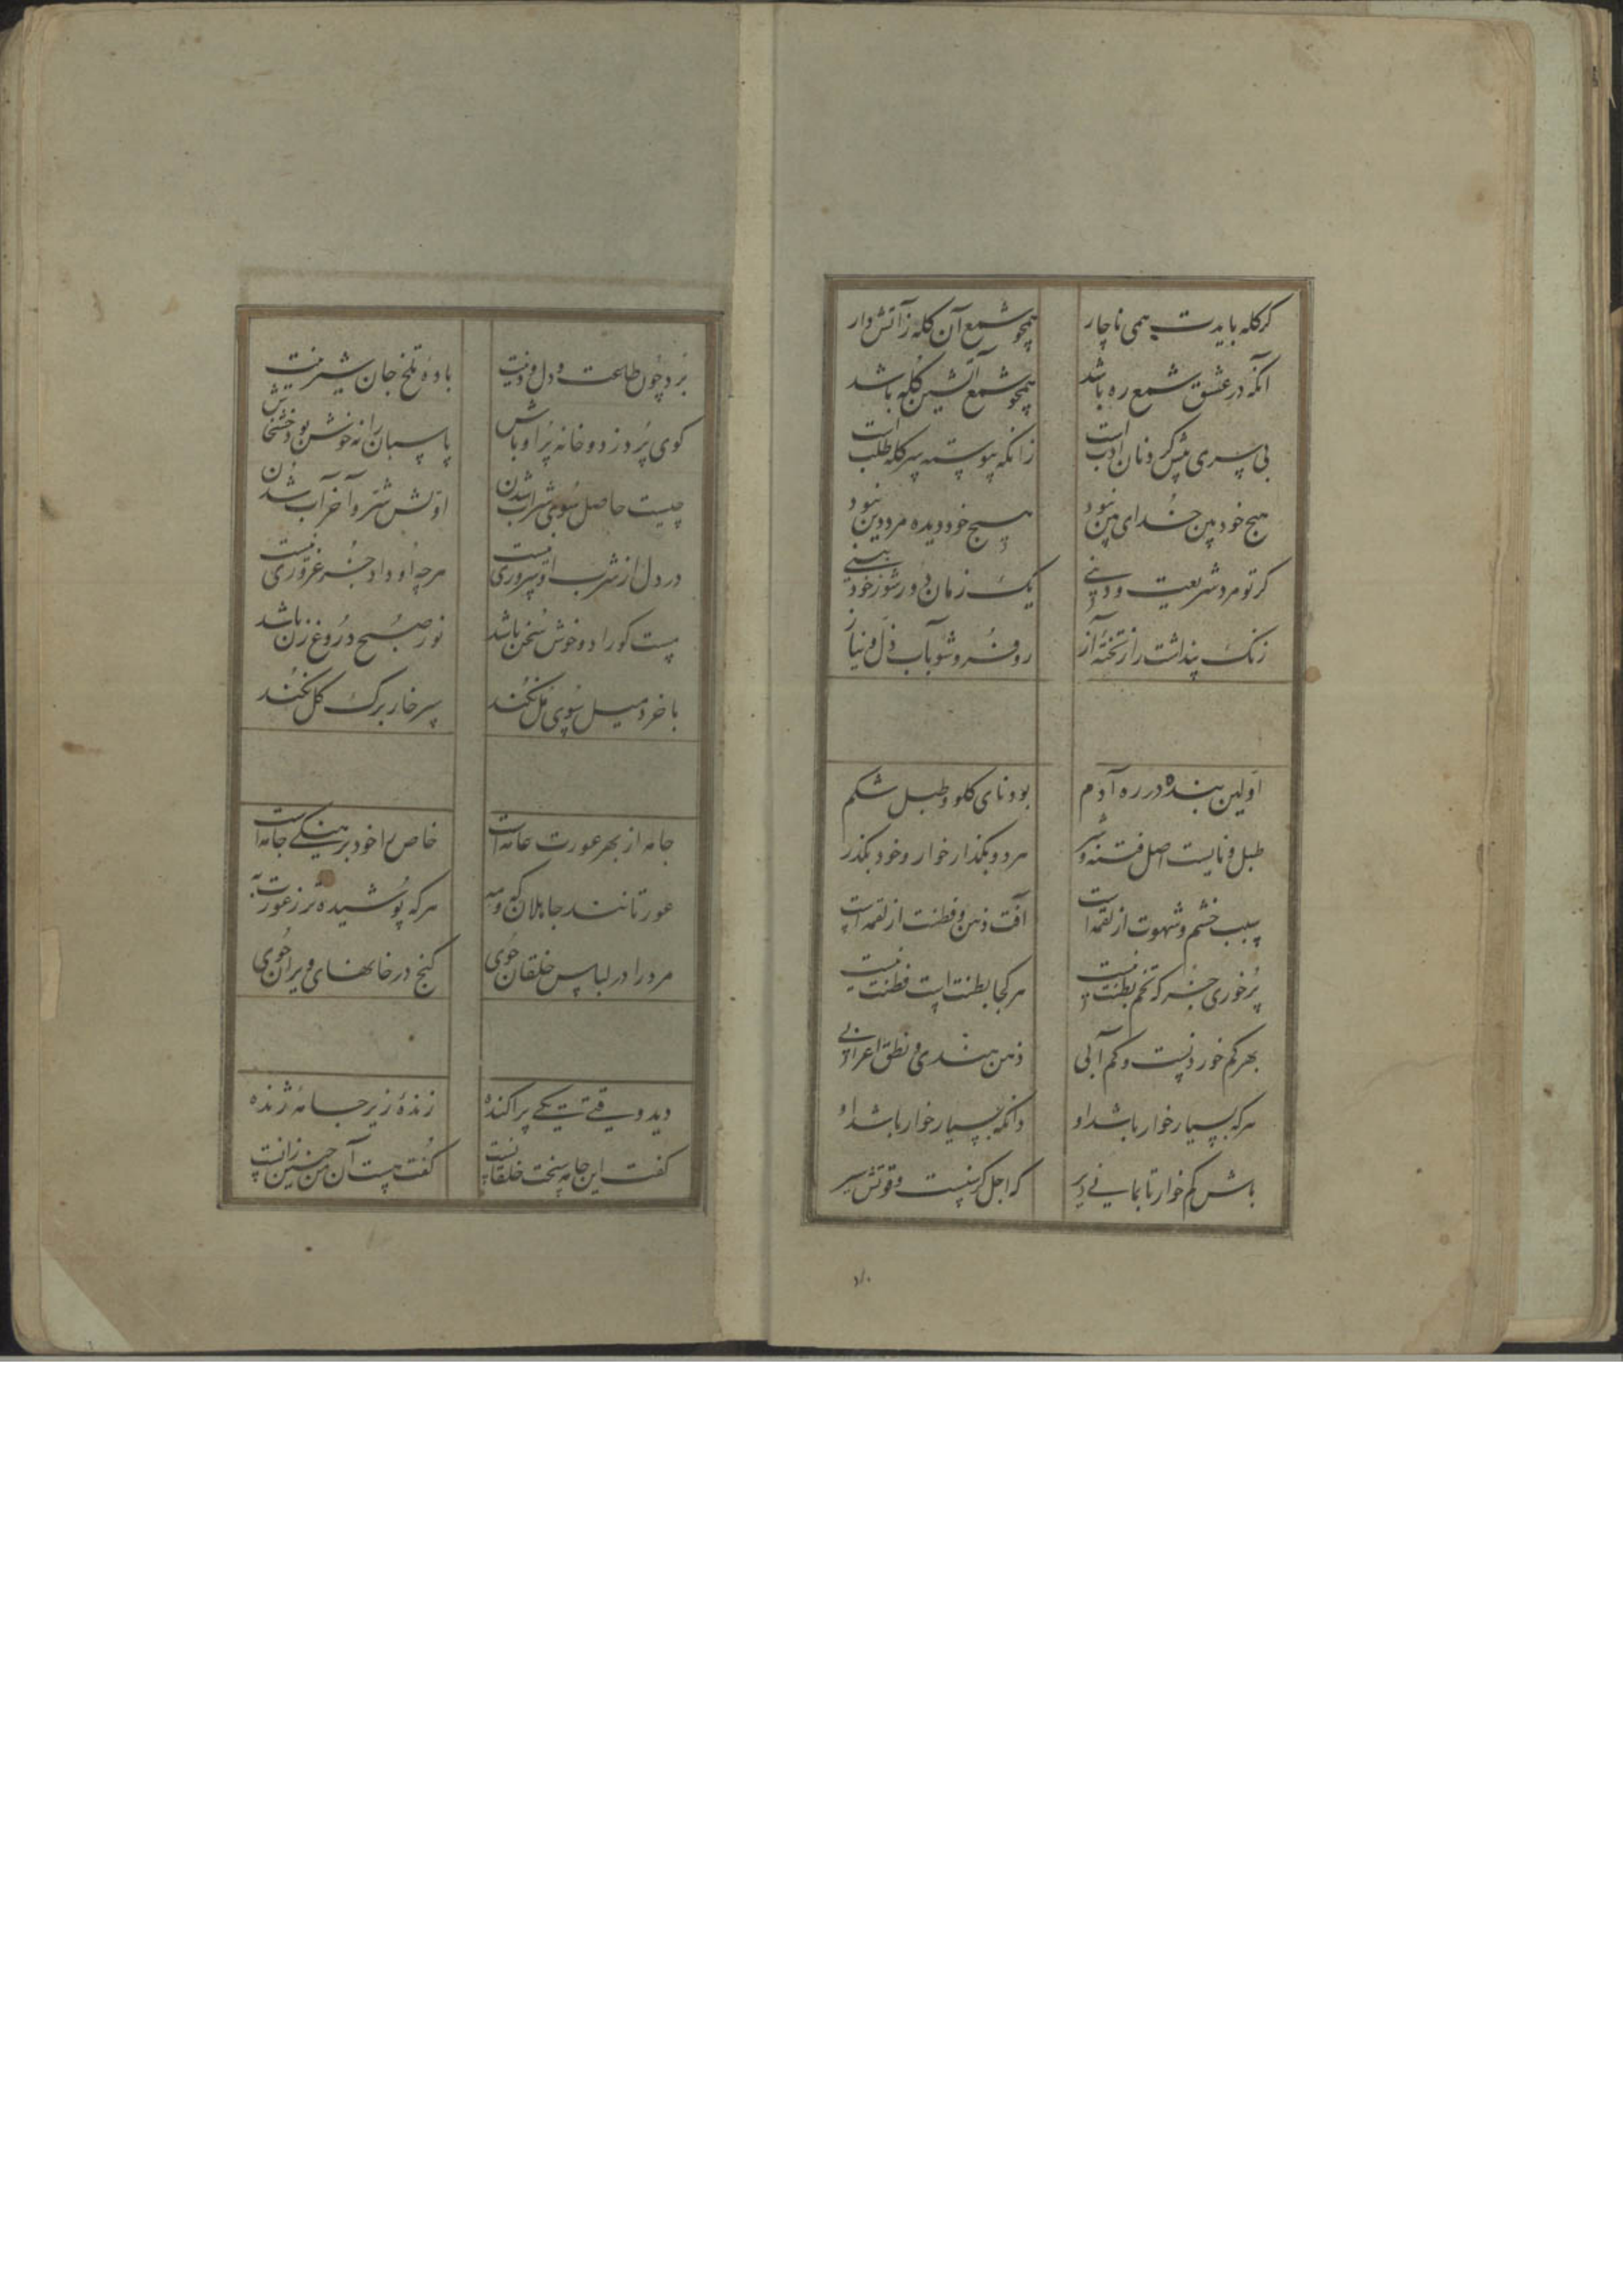 کرکله بایدت همی ناچار همچو شمع آن کله ز آتش دار
آنکه در عشق شمع ره باشد همچو شمع آتشین کله باشد
بی سری پیش کردنان ادبست زانکه پیوسته سر کله طلبست
هیچ خود بین خدای بین نبود هیچ خود دیده مرد دین نبود
کر تو مرد شریعت و دینی یک زمان دور شو ز خود بینی
زنک پنداشت را ز تخته آز رو فرو شو بآب ذل و نیاز
اولین بنده در ره آدم بود نای کلو و طبل شکم
طبل و نایست اصل فتنه و شر هر دو بگذار خوار و خود بگذر
سبب خشم و شهوت از لقمه است آفت ذهن و فطنت از لقمه است
پرخوری جز که تخم بطنت نیست هر کجا بطنت است فطنت نیست
بهر کم خوردنیست و کم آبی ذهن هندی و نطق اعرابی
هرکه بسیار خوار باشد او دانکه بسیار خوار باشد او
باش کم خوار تا بمانی دیر که اجل کرسنیست و قوتش سیر
برد چون طلعت و دل و دینت باده تلخ جان شیرینت
کوی پر دزد و خانه پر اوباش پاسبان را نه خوش بود خشخاش
چیست حاصل سوی شراب شدن اولش شر و آخر آب شدن
در دل از شرب او سروری نیست هرچه او داد جز غروری نیست
مست کو راد و خوش سخن باشد نور صبح دروغ زن باشد
باخرد میل سوی مل نکند سر خار برک کل نکند
جامه از بهر عورت عامه است خاص را خود برهنکی جامه است
عورتانند جاهلان که و مه هرکه پوشیده تر ز عورت به
مرد را در لباس خلقان جوی کنج در خانهای ویران جوی
دید وقتی یکی پراکنده زندهٔ زیر جامهٔ ژنده
کفت این جامه سخت خلقانست کفت هست آن من چنین زانست